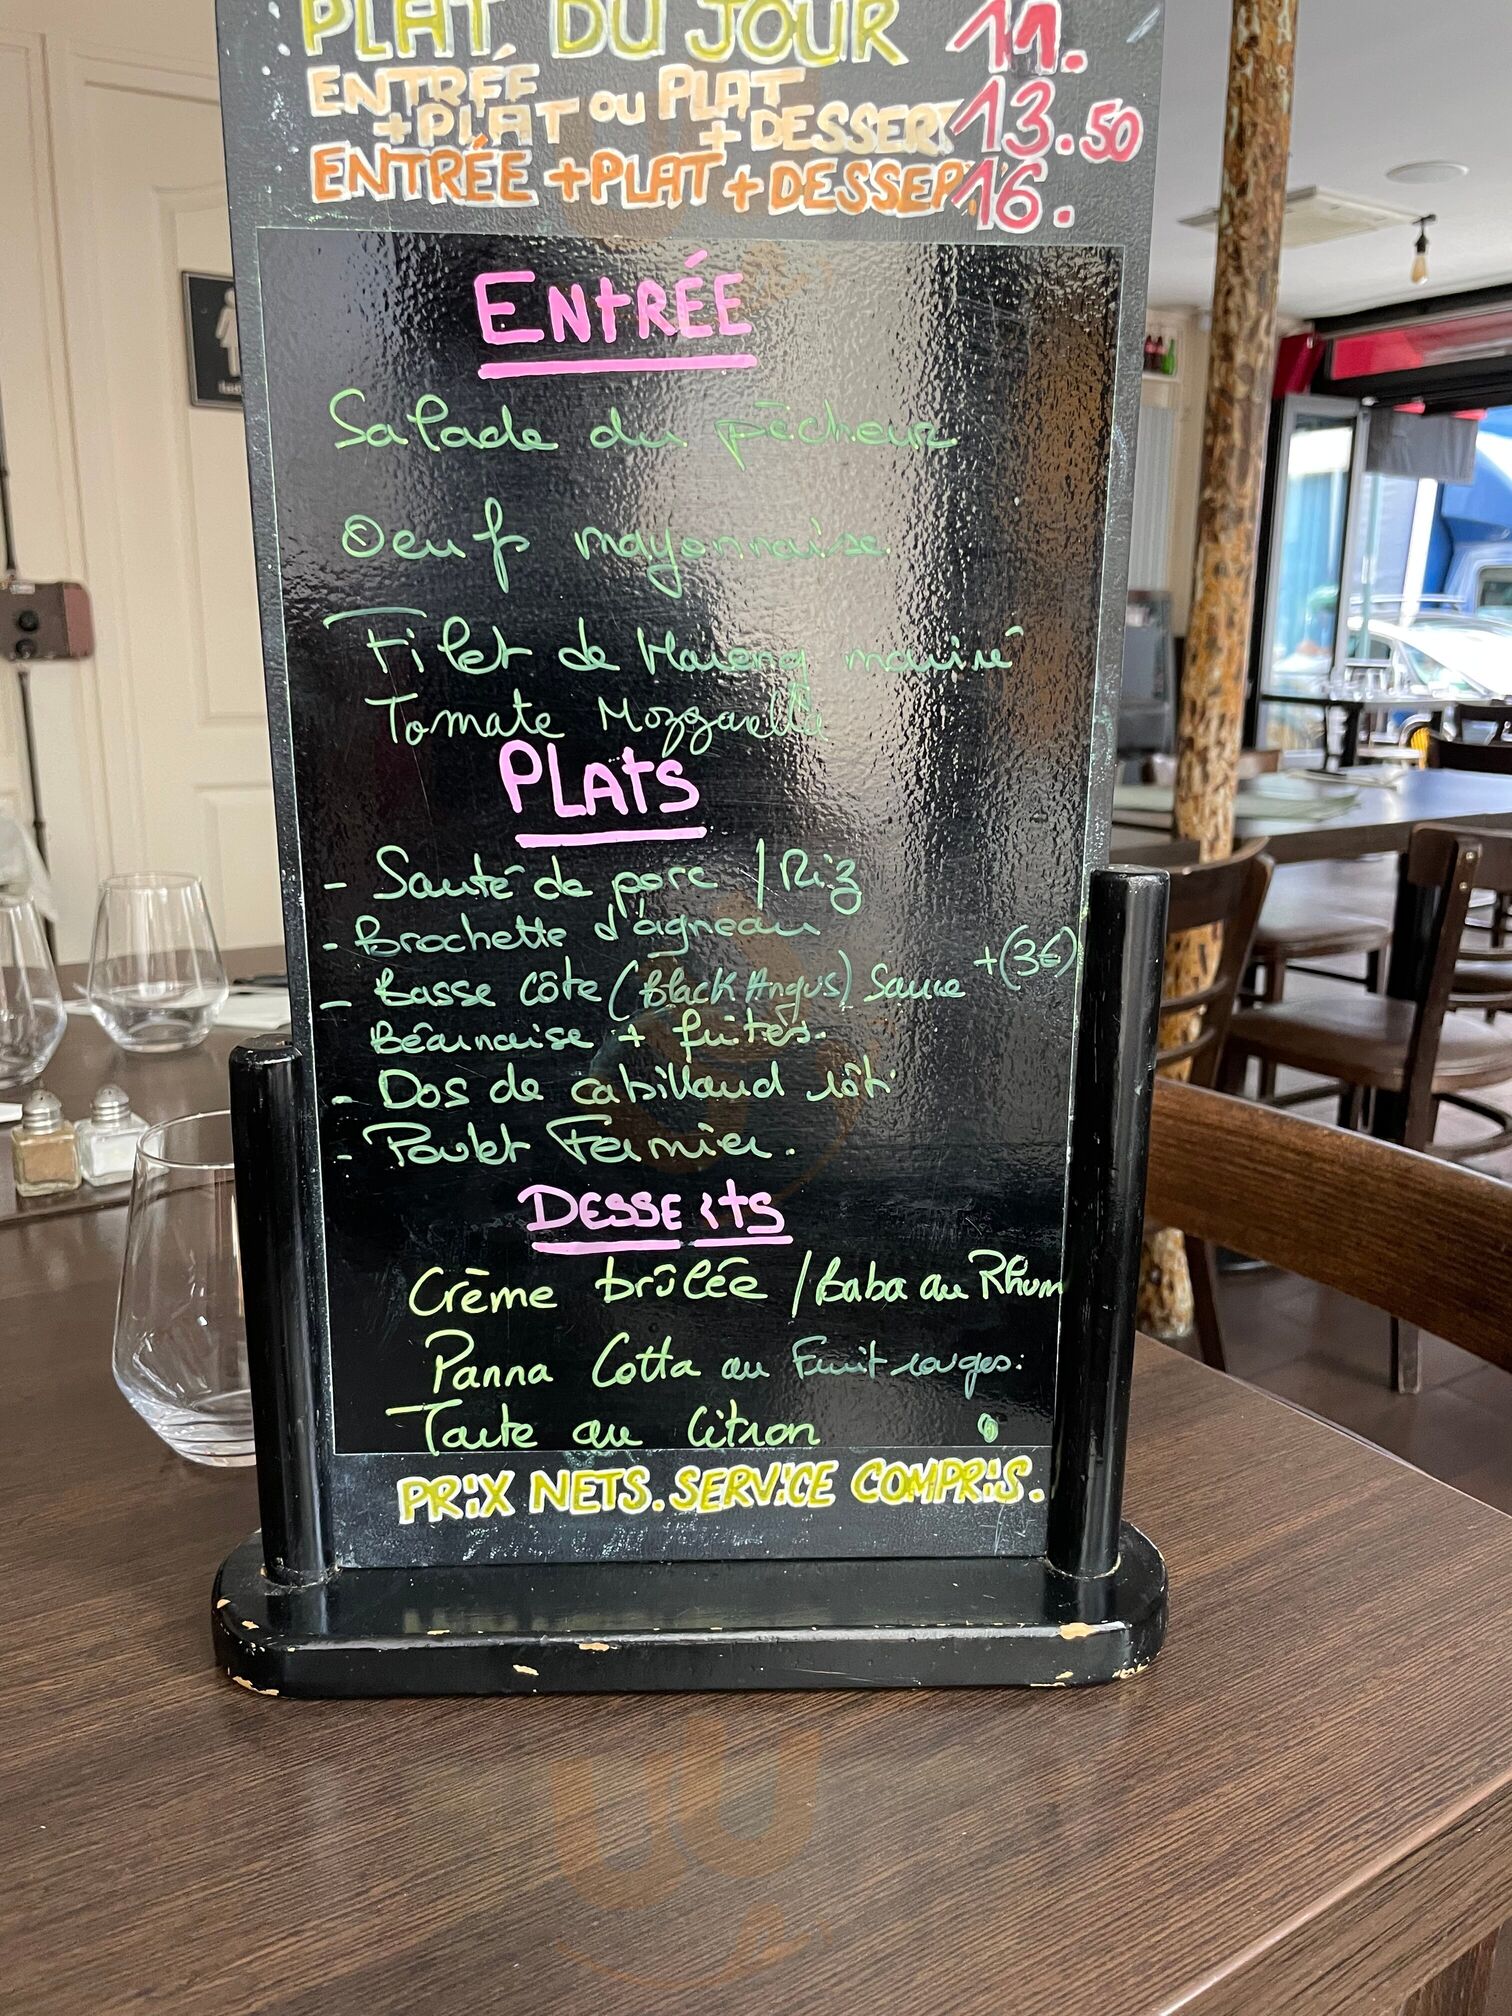 PLAT DU JOUR 11.
ENTRÉE + PLAT OU PLAT + DESSERT 13.50
ENTRÉE + PLAT + DESSERT 16.
ENTRÉE
Salade du pêcheur
Oeuf mayonnaise
Filet de Hareng mariné
Tomate Mozzarella
PLATS
- Sauté de porc / Riz
- Brochette d'agneau
- Basse Côte (Black Angus) Sauce +(3€)
Béarnaise + frites.
- Dos de cabillaud rôti
- Poulet Fermier.
DESSERTS
Crème brûlée / Baba au Rhum
Panna Cotta au Fruit rouges.
Tarte au Citron
PRIX NETS. SERVICE COMPRIS.